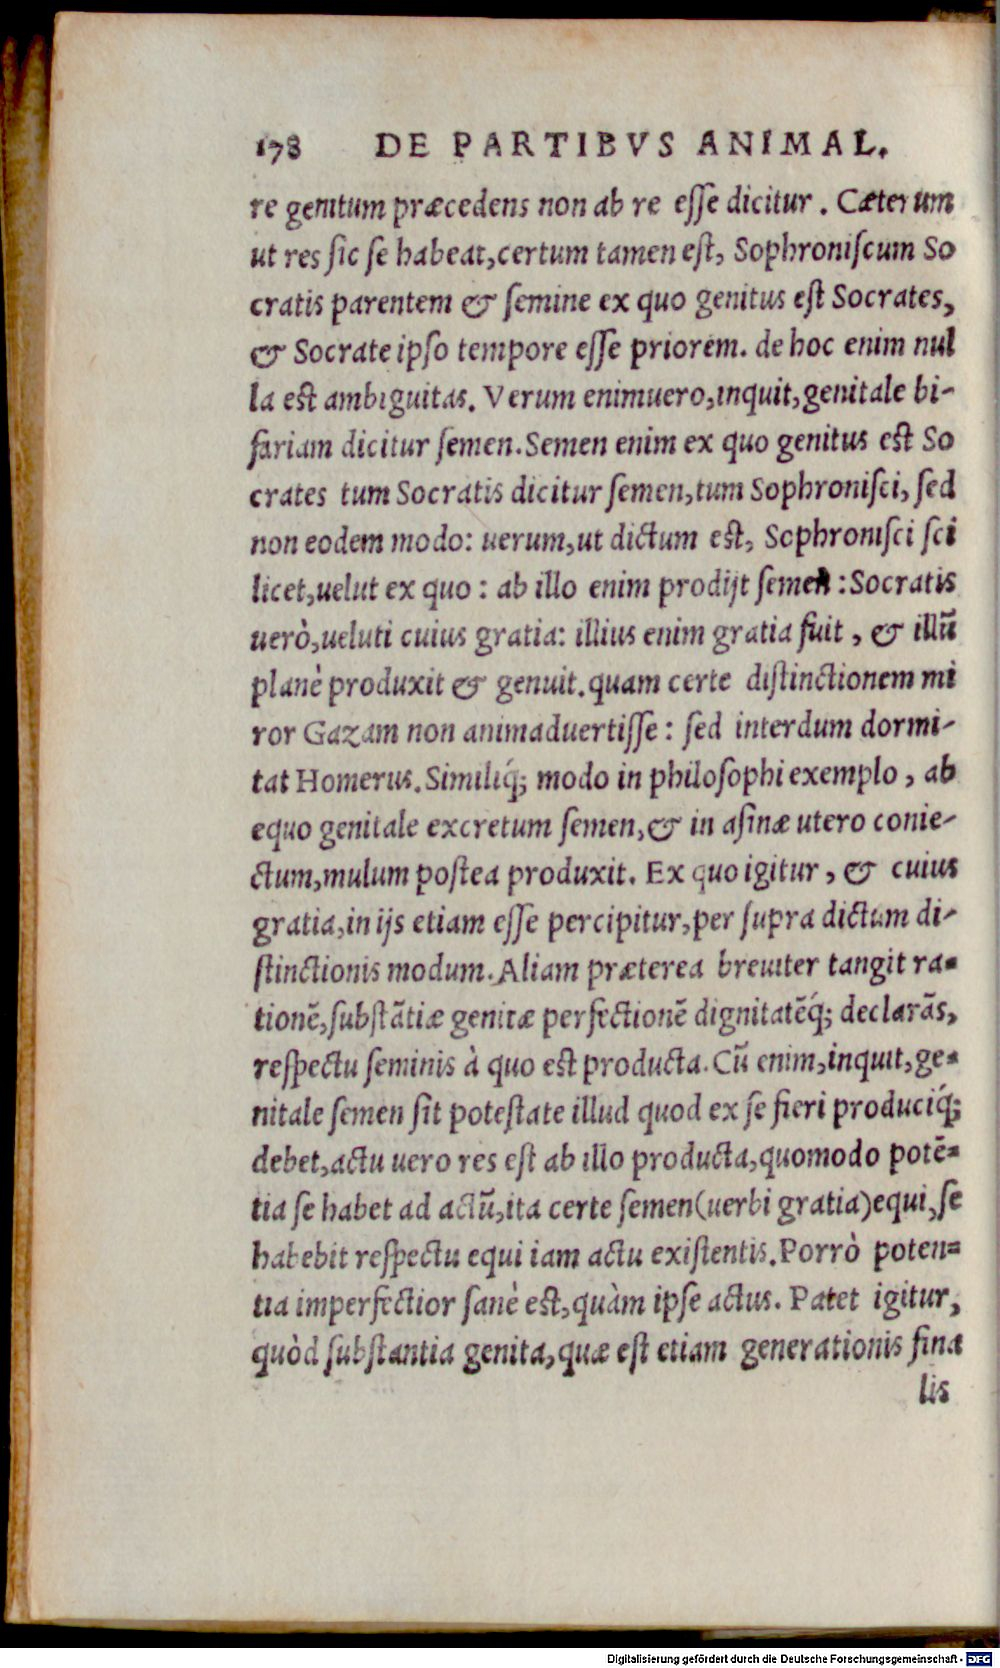 178 DE PARTIBVS ANIMAL.
re genitum præcedens non ab re esse dicitur. Cæterum
ut res sic se habeat, certum tamen est, Sophroniscum So
cratis parentem & semine ex quo genitus est Socrates,
& Socrate ipso tempore esse priorem. de hoc enim nul
la est ambiguitas. Verum enimuero, inquit, genitale bi-
fariam dicitur semen. Semen enim ex quo genitus est So
crates tum Socratis dicitur semen, tum Sophronisci, sed
non eodem modo: uerum, ut dictum est, Sophronisci sci
licet, uelut ex quo: ab illo enim prodijt semen: Socratis
uerò, ueluti cuius gratia: illius enim gratia fuit, & illũ
planè produxit & genuit. quam certe distinctionem mi
ror Gazam non animaduertisse: sed interdum dormi-
tat Homerus. Similiq́; modo in philosophi exemplo, ab
equo genitale excretum semen, & in asinæ utero conie-
ctum, mulum postea produxit. Ex quo igitur, & cuius
gratia, in ijs etiam esse percipitur, per supra dictum di-
stinctionis modum. Aliam præterea breuiter tangit ra-
tionẽ, substãtiæ genitæ perfectionẽ dignitatẽq́; declarãs,
respectu seminis à quo est producta. Cũ enim, inquit, ge-
nitale semen sit potestate illud quod ex se fieri produciq́;
debet, actu uero res est ab illo producta, quomodo potẽ-
tia se habet ad actũ, ita certe semen (uerbi gratia) equi, se
habebit respectu equi iam actu existentis. Porrò poten-
tia imperfectior sanè est, quàm ipse actus. Patet igitur,
quòd substantia genita, quæ est etiam generationis fina
lis
Digitalisierung gefördert durch die Deutsche Forschungsgemeinschaft - DFG